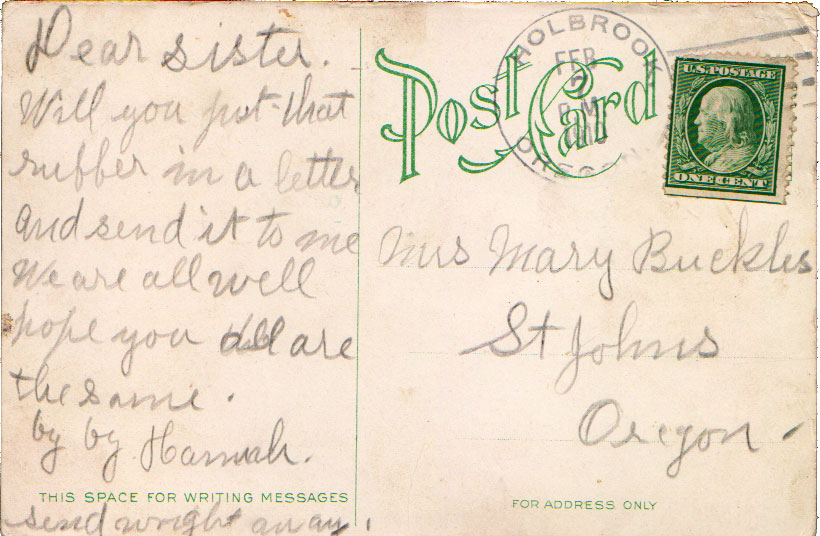 Dear sister.
Will you put that
rubber in a letter
and send it to me
We are all well
hope you all are
the same.
by by Hannah.
THIS SPACE FOR WRITING MESSAGES
send wright away.
Post Card
HOLBROOK
FEB
2
P.M.
OREGON
U.S. POSTAGE
ONE CENT
Mrs Mary Buckles
St Johns
Oregon
FOR ADDRESS ONLY